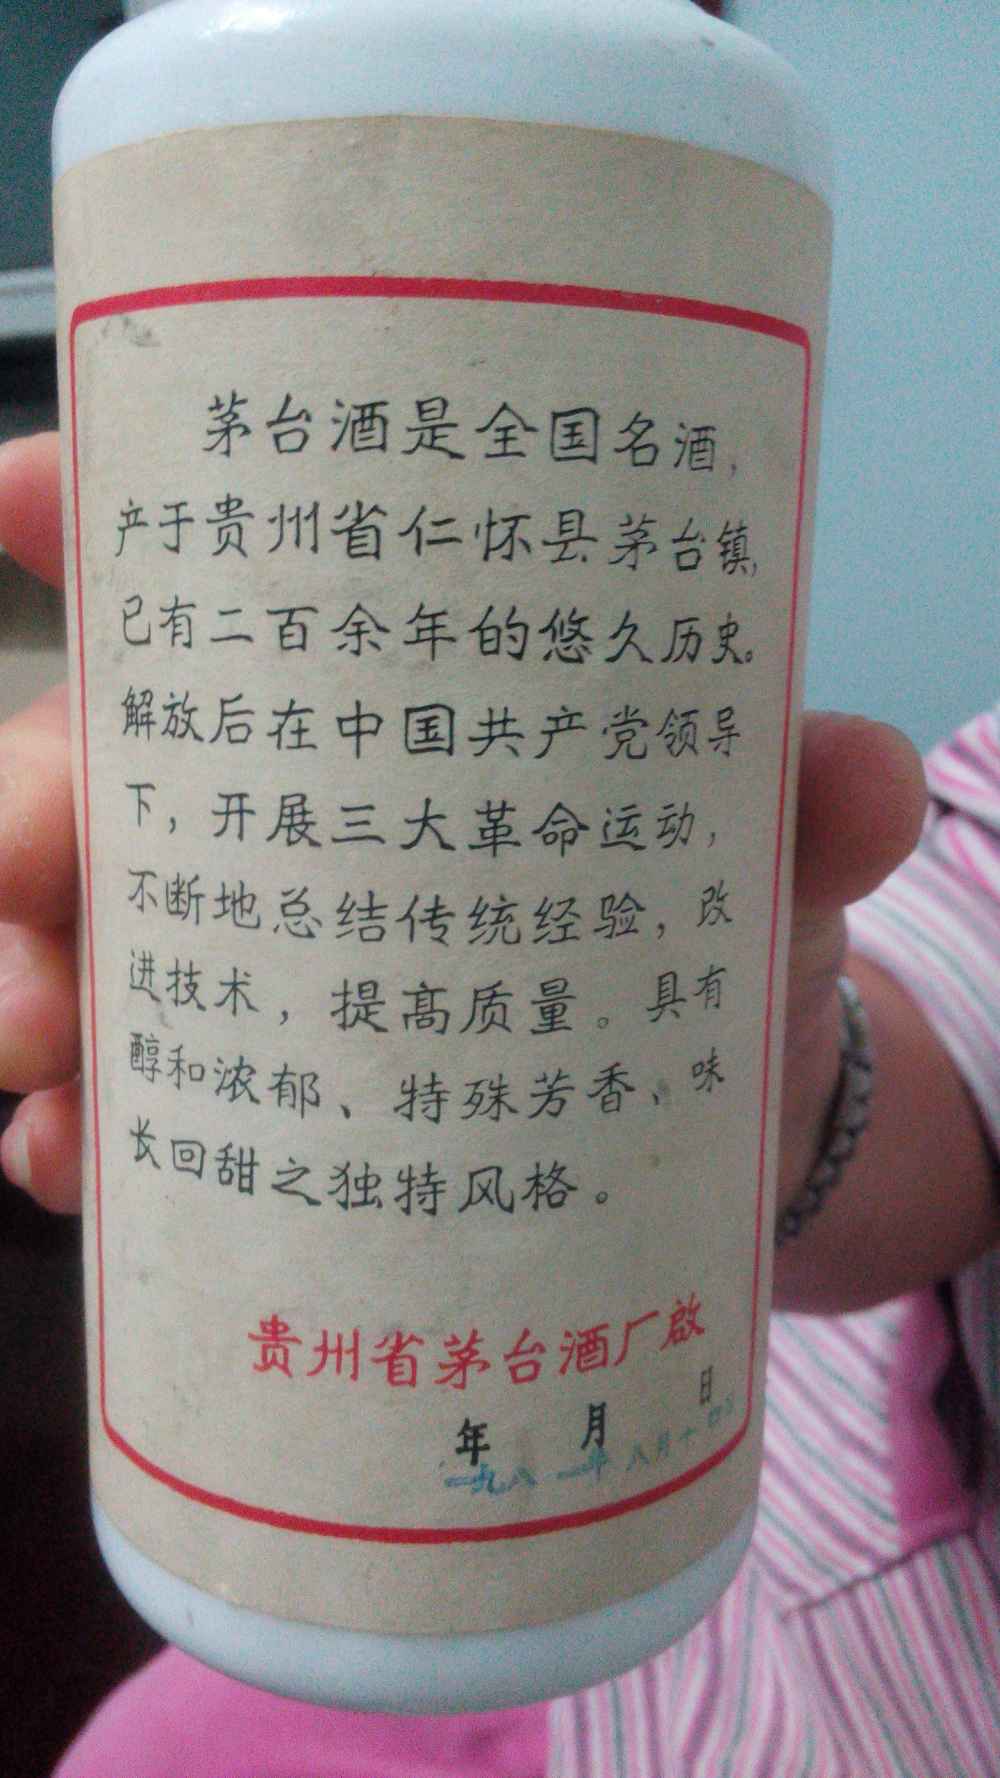 茅台酒是全国名酒，
产于贵州省仁怀县茅台镇，
已有二百余年的悠久历史。
解放后在中国共产党领导
下，开展三大革命运动，
不断地总结传统经验，改
进技术，提高质量。具有
醇和浓郁、特殊芳香、味
长回甜之独特风格。
贵州省茅台酒厂啟
年 月 日
一九八一年八月十